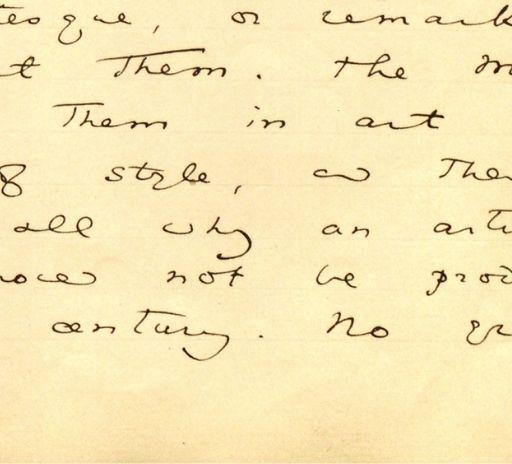 tesque, or remark
t them. The m
them in art
of style, or ther
all why an arti
not be prod
century. No gr